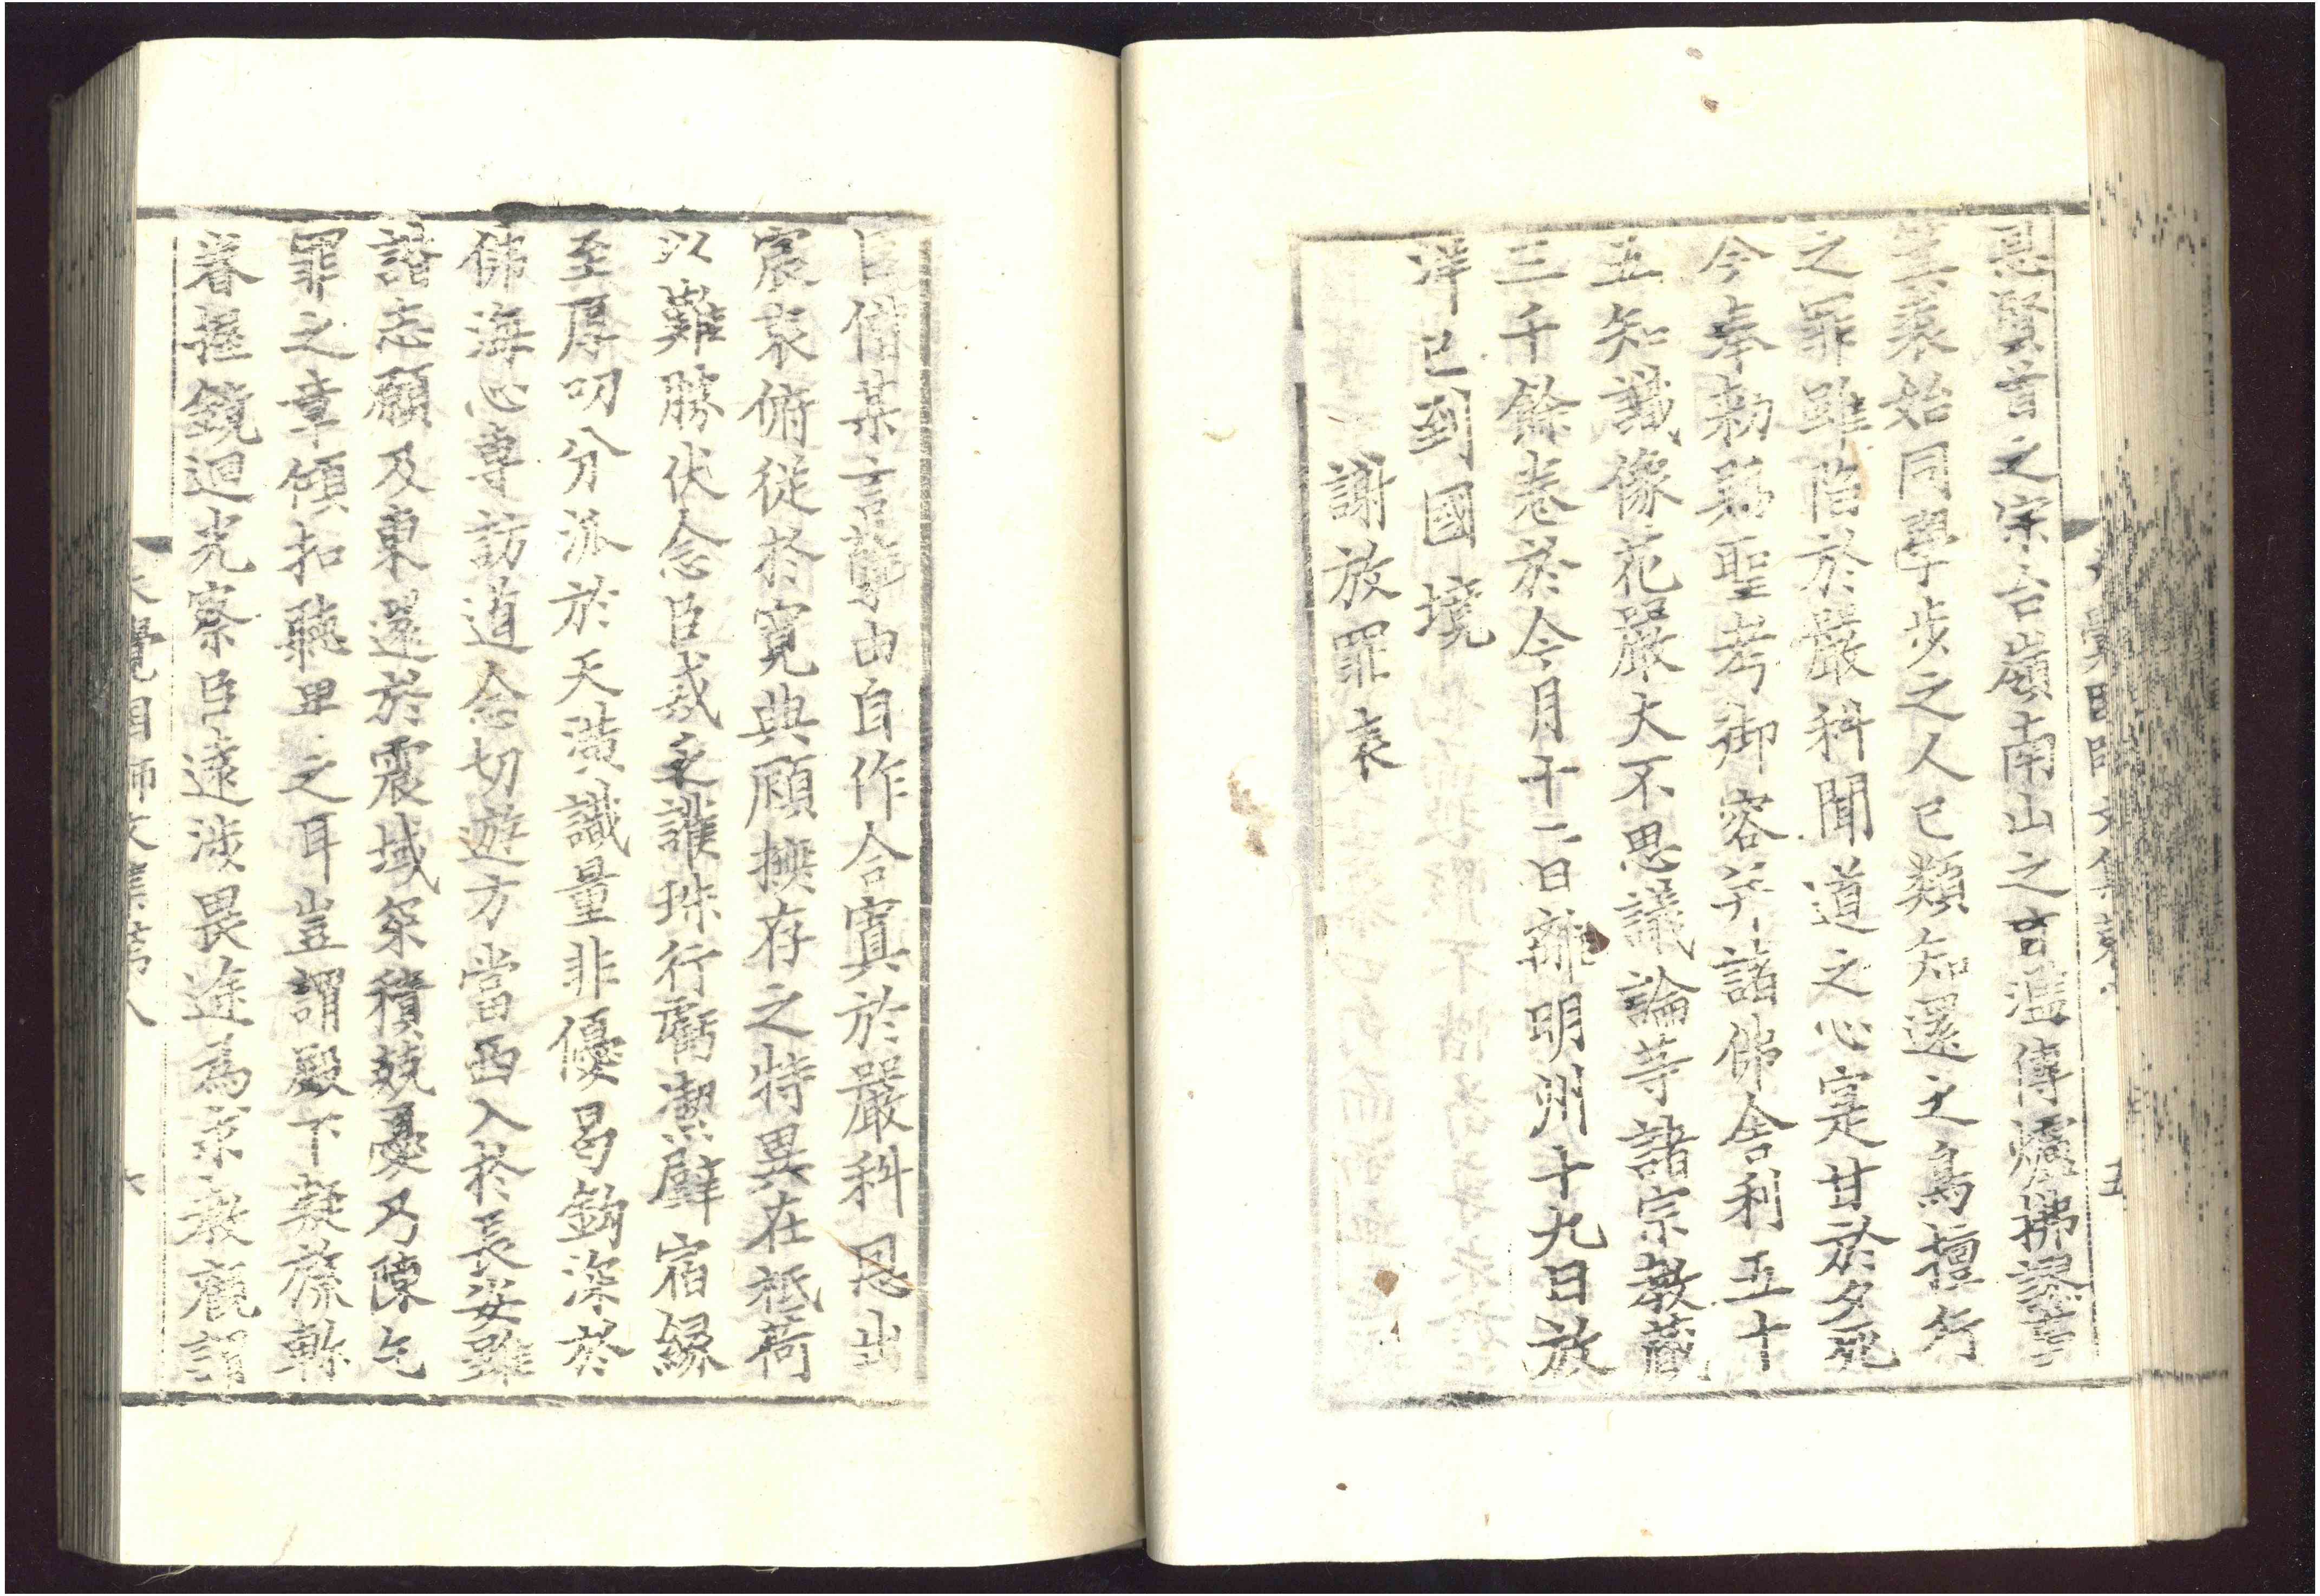 恩賢首之宗台嶺南山之旨濫傳爐拂謬
裘始同學步之人已類知還之鳥擅行
之罪雖陷於嚴科聞道之心寔甘於夕死
今奉勅爲聖考御容并諸佛舍利五十
五知識像花嚴大不思議論等諸宗敎藏
三千餘卷於今月十二日離明州十九日放
洋已到國境
謝放罪表
臣僧某言辜由自作合寘於嚴科恩出
宸衷俯從於寬典顧撫存之特異在祗荷
以難勝伏念臣戒乏護珠行虧潔璧宿緣
至厚叨分派於天潢識量非優曷鉤深於
佛海心專訪道念切遊方當西入於長安雖
諧志願及東還於震域深積兢憂乃陳乞
罪之章傾扣聽卑之耳豈謂殿下凝旒軫
眷握鏡迴光察臣遠涉畏途爲求敎觀謂
大覺國師文集第八
六